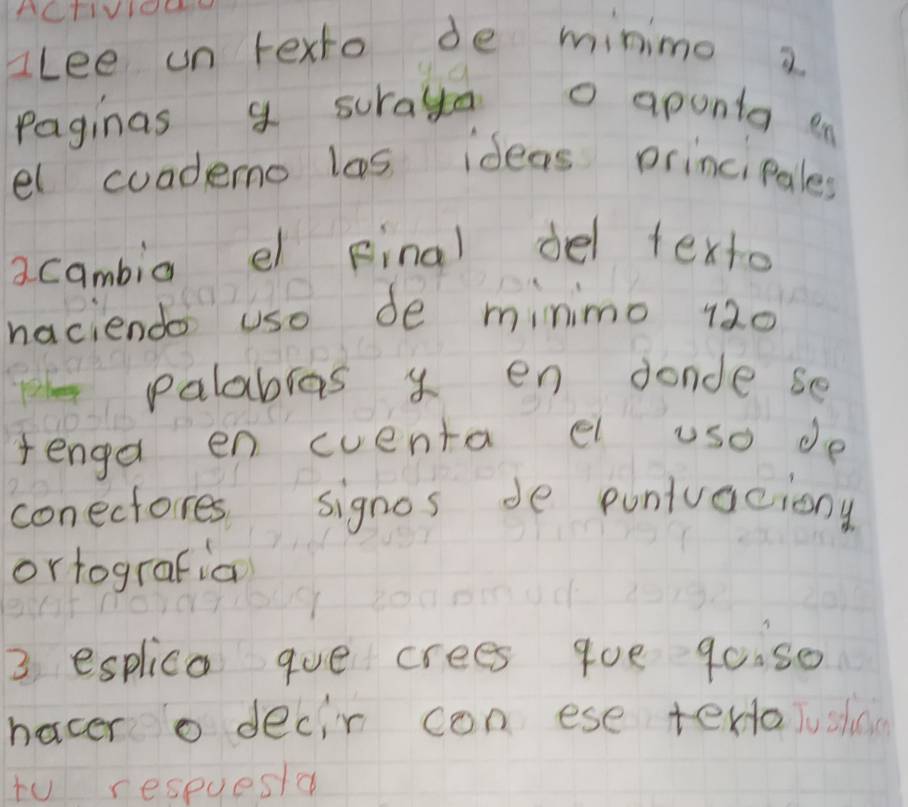 Actividad
1 Lee un texto de minimo 2
paginas y suraya o apunta en
el cuaderno las ideas principales
2 cambia el Final del texto
haciendo uso de minimo 120
palabras y en donde se
tenga en cuenta el uso de
conectores signos de puntuacion y
ortografia
3 esplica que crees que quiso
hacer o decir con ese texto Justifica
tu respuesta